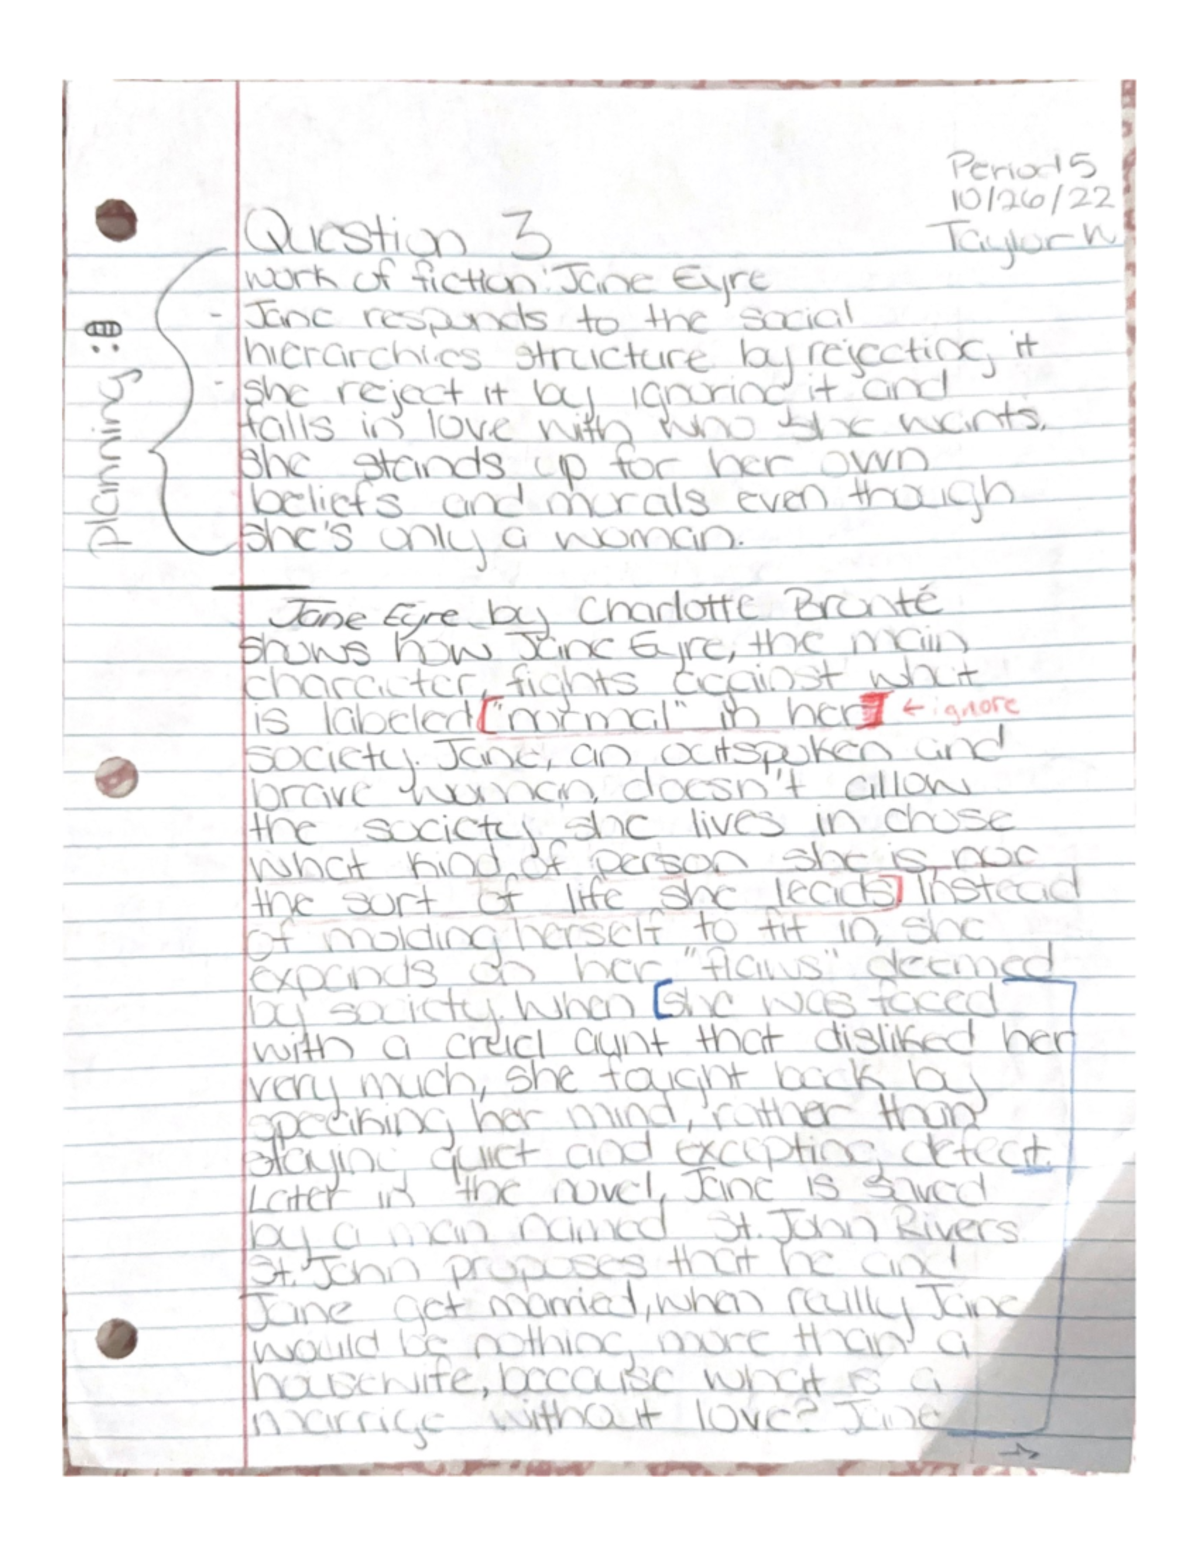 Period 5
10/26/22
Taylor W
Question 3
work of fiction: Jane Eyre
- Jane responds to the social
hierarchies structure by rejecting it
- she reject it by ignoring it and
falls in love with who she wants.
she stands up for her own
beliefs and morals even though
she's only a woman.
Planning :
Jane Eyre by Charlotte Bronté
shows how Jane Eyre, the main
character, fights against what
is labeled ["normal" in her] ← ignore
society. Jane, an outspoken and
brave woman, doesn't allow
the society she lives in chose
what kind of person she is nor
the sort of life she leads] Instead
of molding herself to fit in, she
expands on her "flaws" deemed
by society. When [she was faced
with a cruel aunt that disliked her
very much, she fought back by
speaking her mind, rather than
staying quiet and excepting defect.
Later in the novel, Jane is saved
by a man named St. John Rivers.
St. John proposes that he and
Jane get married, when really Jane
would be nothing more than a
housewife, because what is a
marrige without love? Jane
→